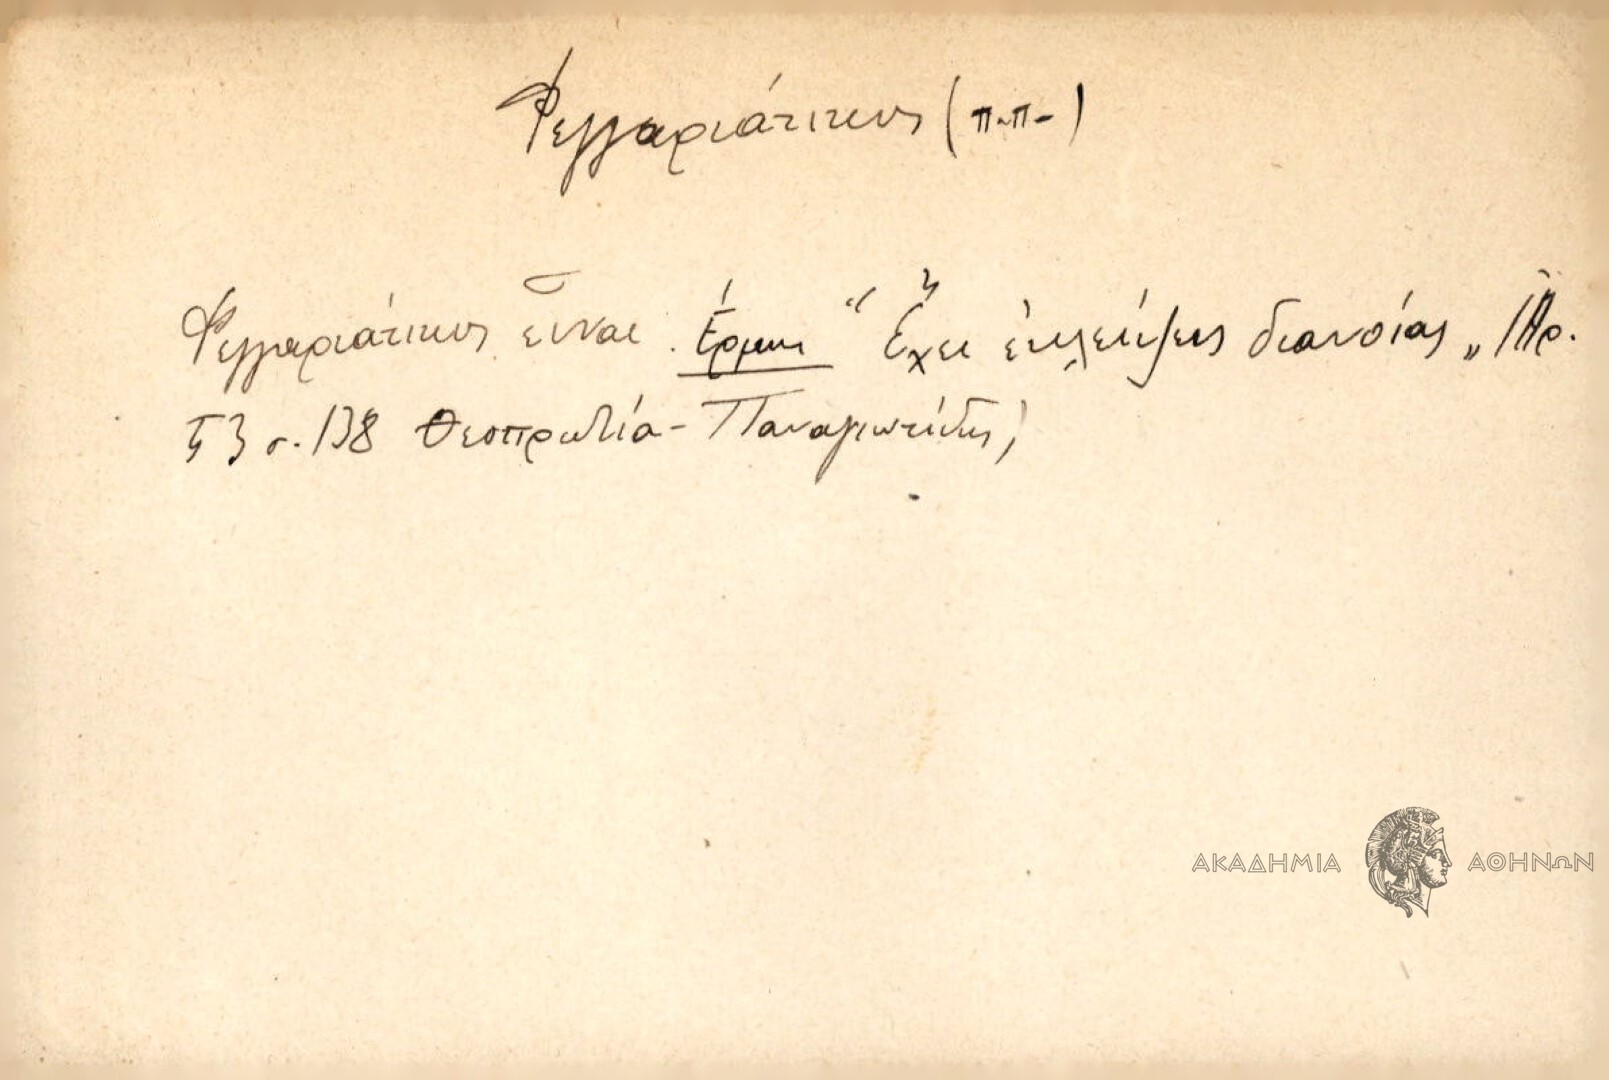 Φεγγαριάτικος (π.π.)
Φεγγαριάτικος εἶναι. Ἑρμην. "Ἔχει ἐκλείψεις διανοίας" (Ἀρ.
σ. 138 Θεσπρωτία - Παναγιωτίδης)
ΑΚΑΔΗΜΙΑ ΑΘΗΝΩΝ